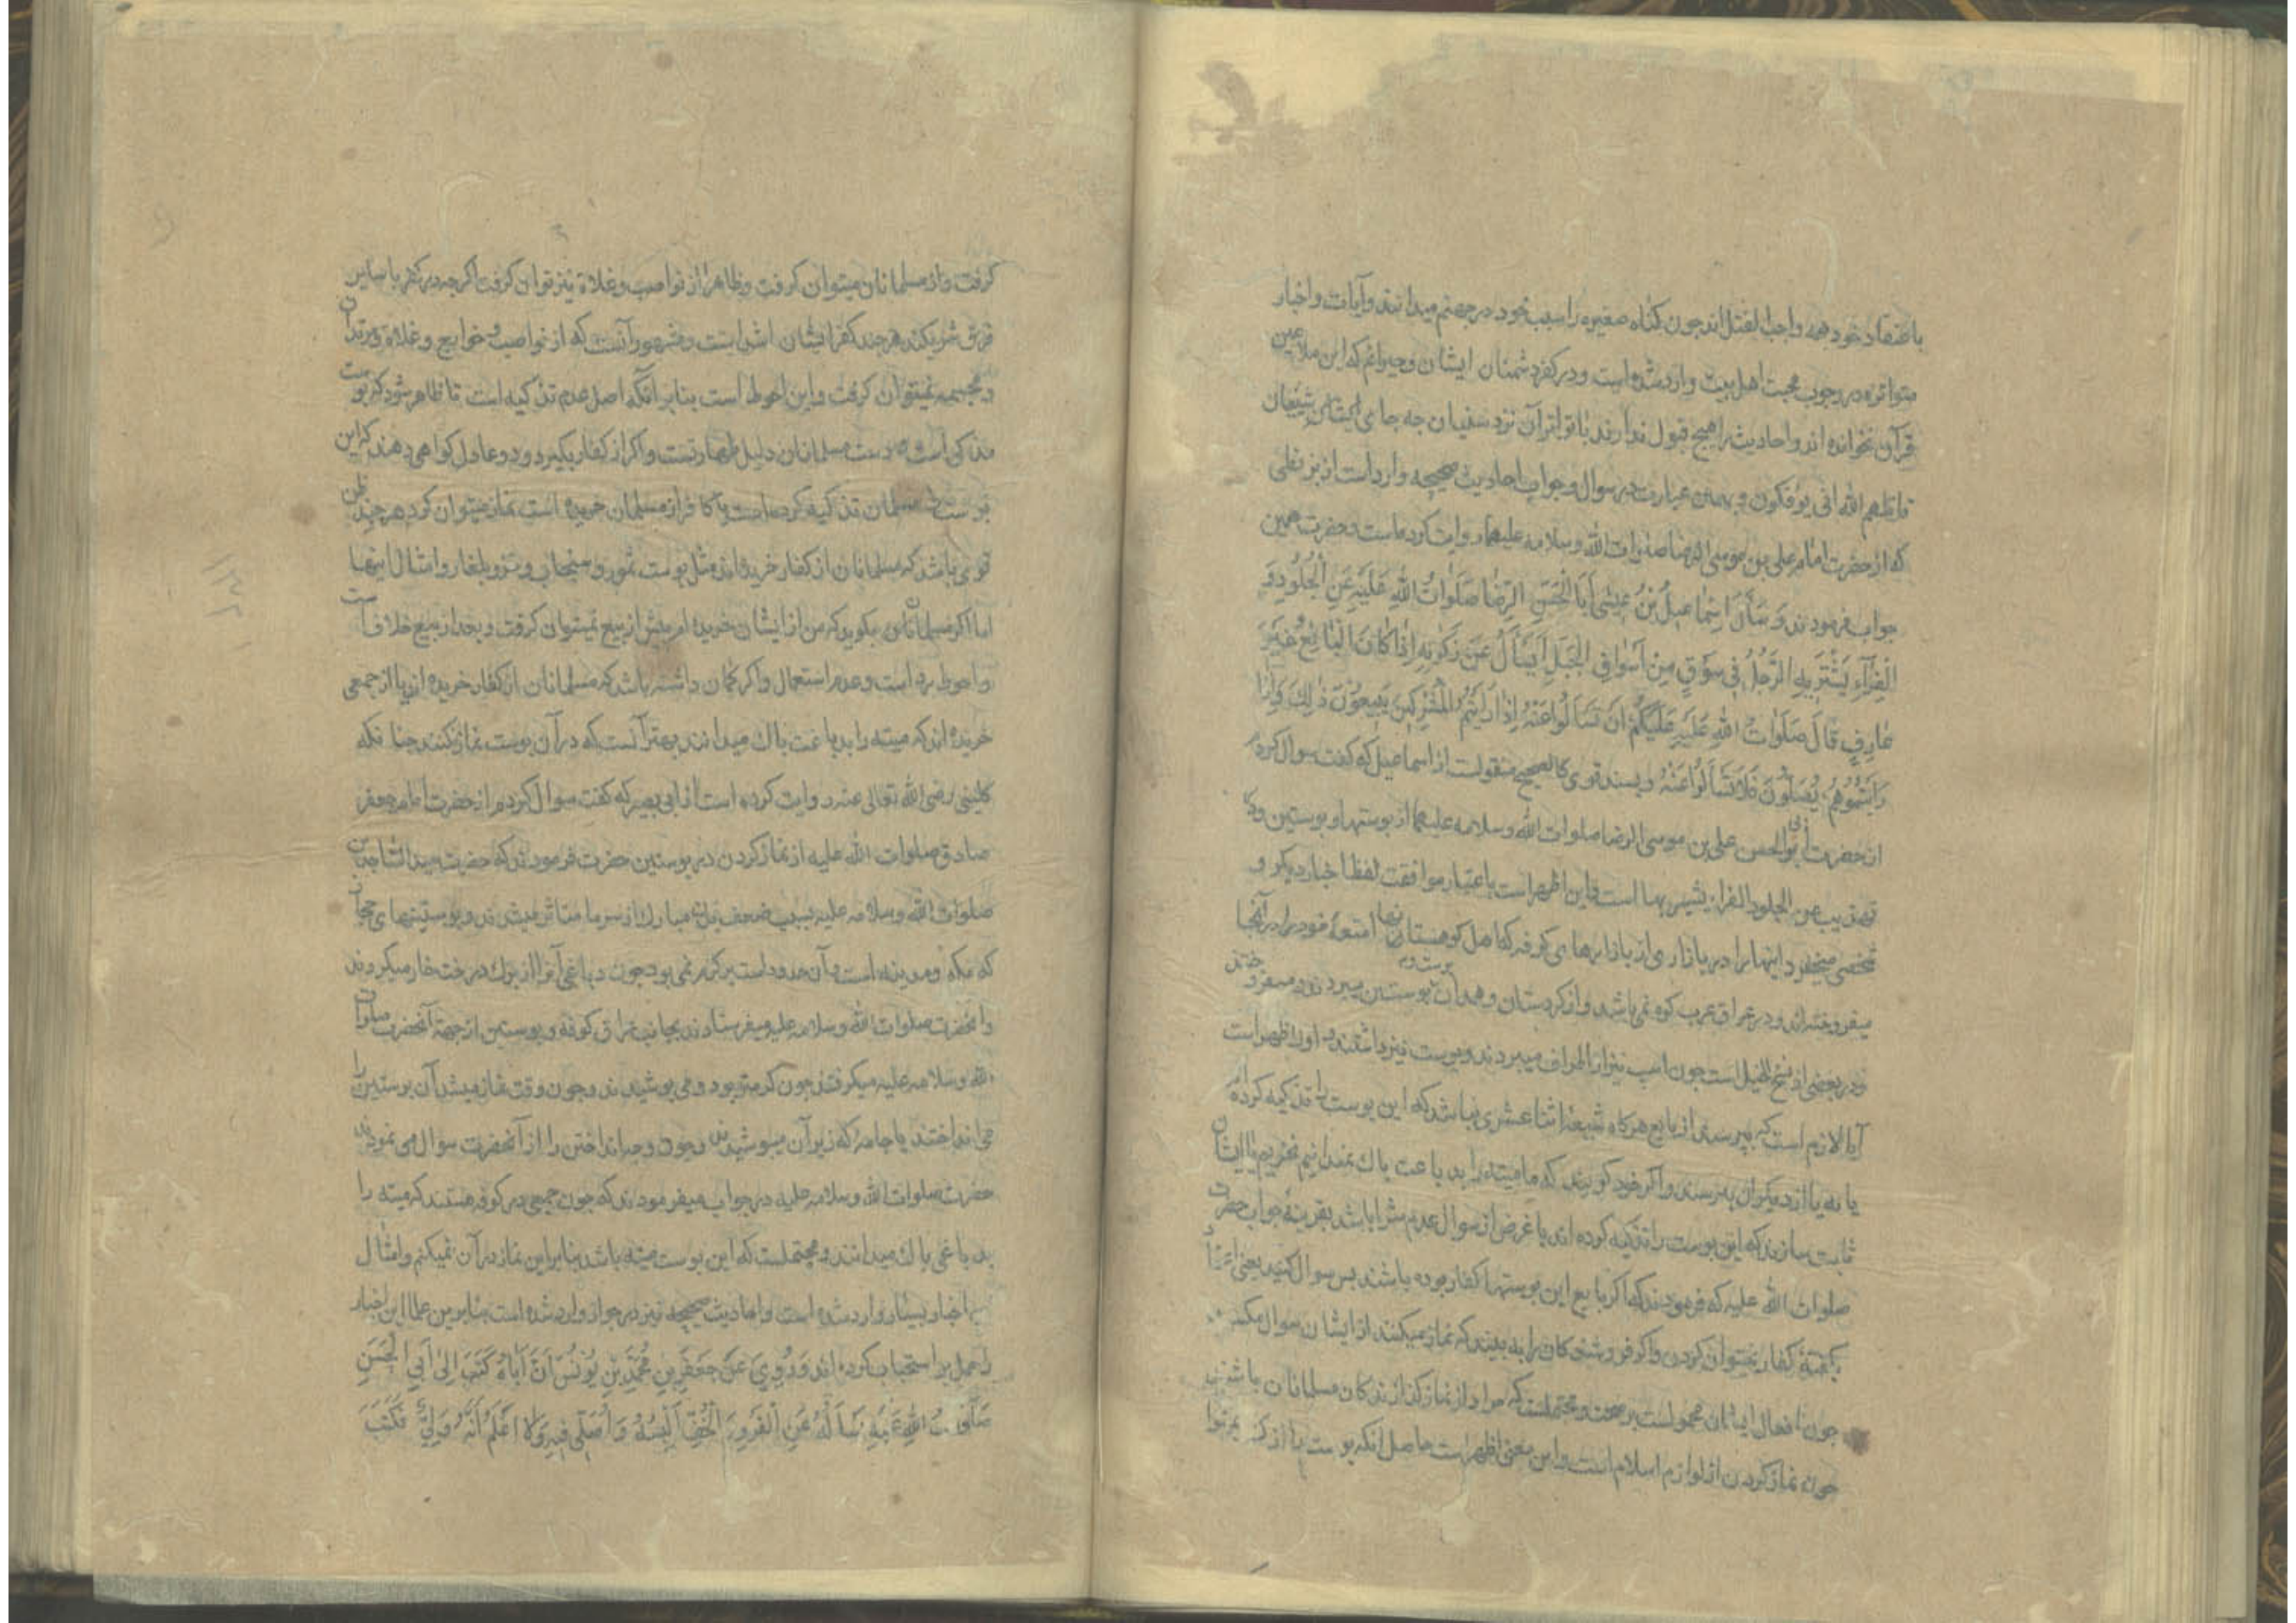 باعتقاد خود همه واجب القتل اند چون گناه صغیره را سبب خود در جهنم میدانند و آیات و اخبار
متواتره در وجوب محبت اهل بیت وارد شده است و در کفر دشمنان ایشان و حیرانم که این ملاعین
قرآن نخوانده اند و احادیث را هیچ قبول ندارند با تواتر آن نزد سنیان چه جای ایشان شیعیان
قاتلهم الله انی یؤفکون و بهمین عبارت در سوال و جواب احادیث صحیحه وارد است از بزنطی
که از حضرت امام علی بن موسی الرضا صلوات الله وسلامه علیهما روایت کرده است و حضرت همین
جواب فرمودند وَ سَأَلَ اِسْمَاعِیلُ بْنُ عِیسٰی اَبَا الْحَسَنِ الرِّضَا صَلَوَاتُ اللّٰهِ عَلَیْهِ عَنِ الْجُلُودِ وَ
الْفِرَآءِ یَشْتَرِیهِ الرَّجُلُ فِی سُوْقٍ مِنْ اَسْوَاقِ الْجَبَلِ اَیَسْأَلُ عَنْ ذَکٰوتِهِ اِذَا کَانَ الْبَائِعُ غَیْرَ
عَارِفٍ قَالَ صَلَوَاتُ اللّٰهِ عَلَیْهِ عَلَیْکُمْ اَنْ تَسْأَلُوا عَنْهُ اِذَا رَاَیْتُمُ الْمُشْرِکِینَ یَبِیعُوْنَ ذٰلِکَ وَ اِذَا
رَاَیْتُمُوهُمْ یُصَلُّوْنَ فَلَا تَسْأَلُوا عَنْهُ و بسند قوی کالصحیح منقولست از اسماعیل که گفت سوال کردم
از حضرت ابوالحسن علی بن موسی الرضا صلوات الله وسلامه علیهما از پوستها و پوستین و در
تهذیب عن الجلود الفراء یشتریها است و این اظهر است باعتبار موافقت لفظ اخبار دیگر و
شخصی میخرد اینها را در بازاری از بازارهای کوفه که اهل کوهستان امتعهٔ خود را در آنجا
میفروخته اند و در عراق عرب کوه نمی باشد و از کردستان و همدان پوستین میبردند و میفروختند
و در بعضی از نسخ للخیل است چون اسب نیز از اطراف میبردند و پوست نیز داشتند و اول اظهر است
آیا لازم است که بپرسند از بایع هرگاه شیعهٔ اثنا عشری نباشد که این پوست را تذکیه کرده اند
یا نه یا از دیگران بپرسند و اگر خود گویند که ما میته را بدباغت پاک نمیدانیم نخریم تا ایشان
ثابت سازند که این پوست را تذکیه کرده اند یا غرض از سوال عدم شرا باشد بقرینهٔ جواب حضرت
صلوات الله علیه که فرمودند که اگر بایع این پوستها کفار بوده باشند پس سوال کنید یعنی
بگفتهٔ کفار نمیتوان کردن و اگر فروشندگان را به بینید که نماز میکنند از ایشان سوال مکنید
چون افعال ایشان محمولست بر صحت و محتملست که مراد از نماز گذارندگان مسلمانان باشند
چون نماز کردن از لوازم اسلام است و این معنی اظهر است حاصل آنکه پوست را از
گرفت و از مسلمانان میتوان گرفت و ظاهرا از نواصب و غلاة نیز توان گرفت اگر چه در کفر با سایر
فرق شریکند هر چند کفر ایشان اشد است و مشهور آنست که از نواصب و خوارج و غلاة و مرتدان
و مجسمه نمیتوان گرفت و این احوط است بنا بر آنکه اصل عدم تذکیه است تا ظاهر شود که پوست
مذکی است و دست مسلمانان دلیل طهارتست و اگر از کفار بگیرد و دو عادل گواهی دهند که این
پوست را مسلمان تذکیه کرده است یا کافر از مسلمان خریده است نماز میتوان کرد هر چند ظن
قوی باشد که مسلمانان از کفار خریده اند مثل پوست سمور و سنجاب و تزو بلغار و امثال اینها
اما اگر مسلمانان بگوید که من از ایشان خریده ام پیش از بیع نمیتوان گرفت و بعد از بیع خلاف است
و احوط رد است و عدم استعمال و اگر گمان داشته باشد که مسلمانان از کفار خریده اند یا از جمعی
خریده اند که میته را بدباغت پاک میدانند بهتر آنست که در آن پوست نماز نکنند چنانکه
کلینی رضی الله تعالی عنه روایت کرده است از ابی بصیر که گفت سوال کردم از حضرت امام جعفر
صادق صلوات الله علیه از نماز کردن در پوستین حضرت فرمودند که حضرت سید الساجدین
صلوات الله وسلامه علیه بسبب ضعف بدن مبارک از سرما متاثر میشدند و پوستینهای حجاز
که مکه و مدینه است و آن حدود است گرم نمی بود چون دباغی آنرا از برگ درخت خار میکردند
و آنحضرت صلوات الله وسلامه علیه میفرستادند بجانب عراق کوفه و پوستین از جهة آنحضرت صلوات
الله وسلامه علیه میگرفتند چون گرمتر بود و می پوشیدند و چون وقت نماز میشد آن پوستین را
می انداختند با جامهٔ که زیر آن میپوشیدند و چون وجه انداختن را از آنحضرت سوال می نمودند
حضرت صلوات الله وسلامه علیه در جواب میفرمودند که چون جمعی در کوفه هستند که میته را
بدباغی پاک میدانند و محتملست که این پوست میته باشد بنابراین نماز در آن نمیکنم و امثال
اخبار بسیار وارد شده است و احادیث صحیحه نیز در جواز وارد شده است بنابرین علما این اخبار
را حمل بر استحباب کرده اند وَ رُوِیَ عَنْ جَعْفَرِ بْنِ مُحَمَّدِ بْنِ یُوْنُسَ اَنَّ اَبَاهُ کَتَبَ اِلٰی اَبِی الْحَسَنِ
صَلَوَاتُ اللّٰهِ عَلَیْهِ یَسْأَلُهُ عَنِ الْفَرْوِ وَ الْخُفِّ اَلْبَسُهُ وَ اُصَلِّی فِیهِ وَ لَا اَعْلَمُ اَنَّهُ ذَکِیٌّ فَکَتَبَ